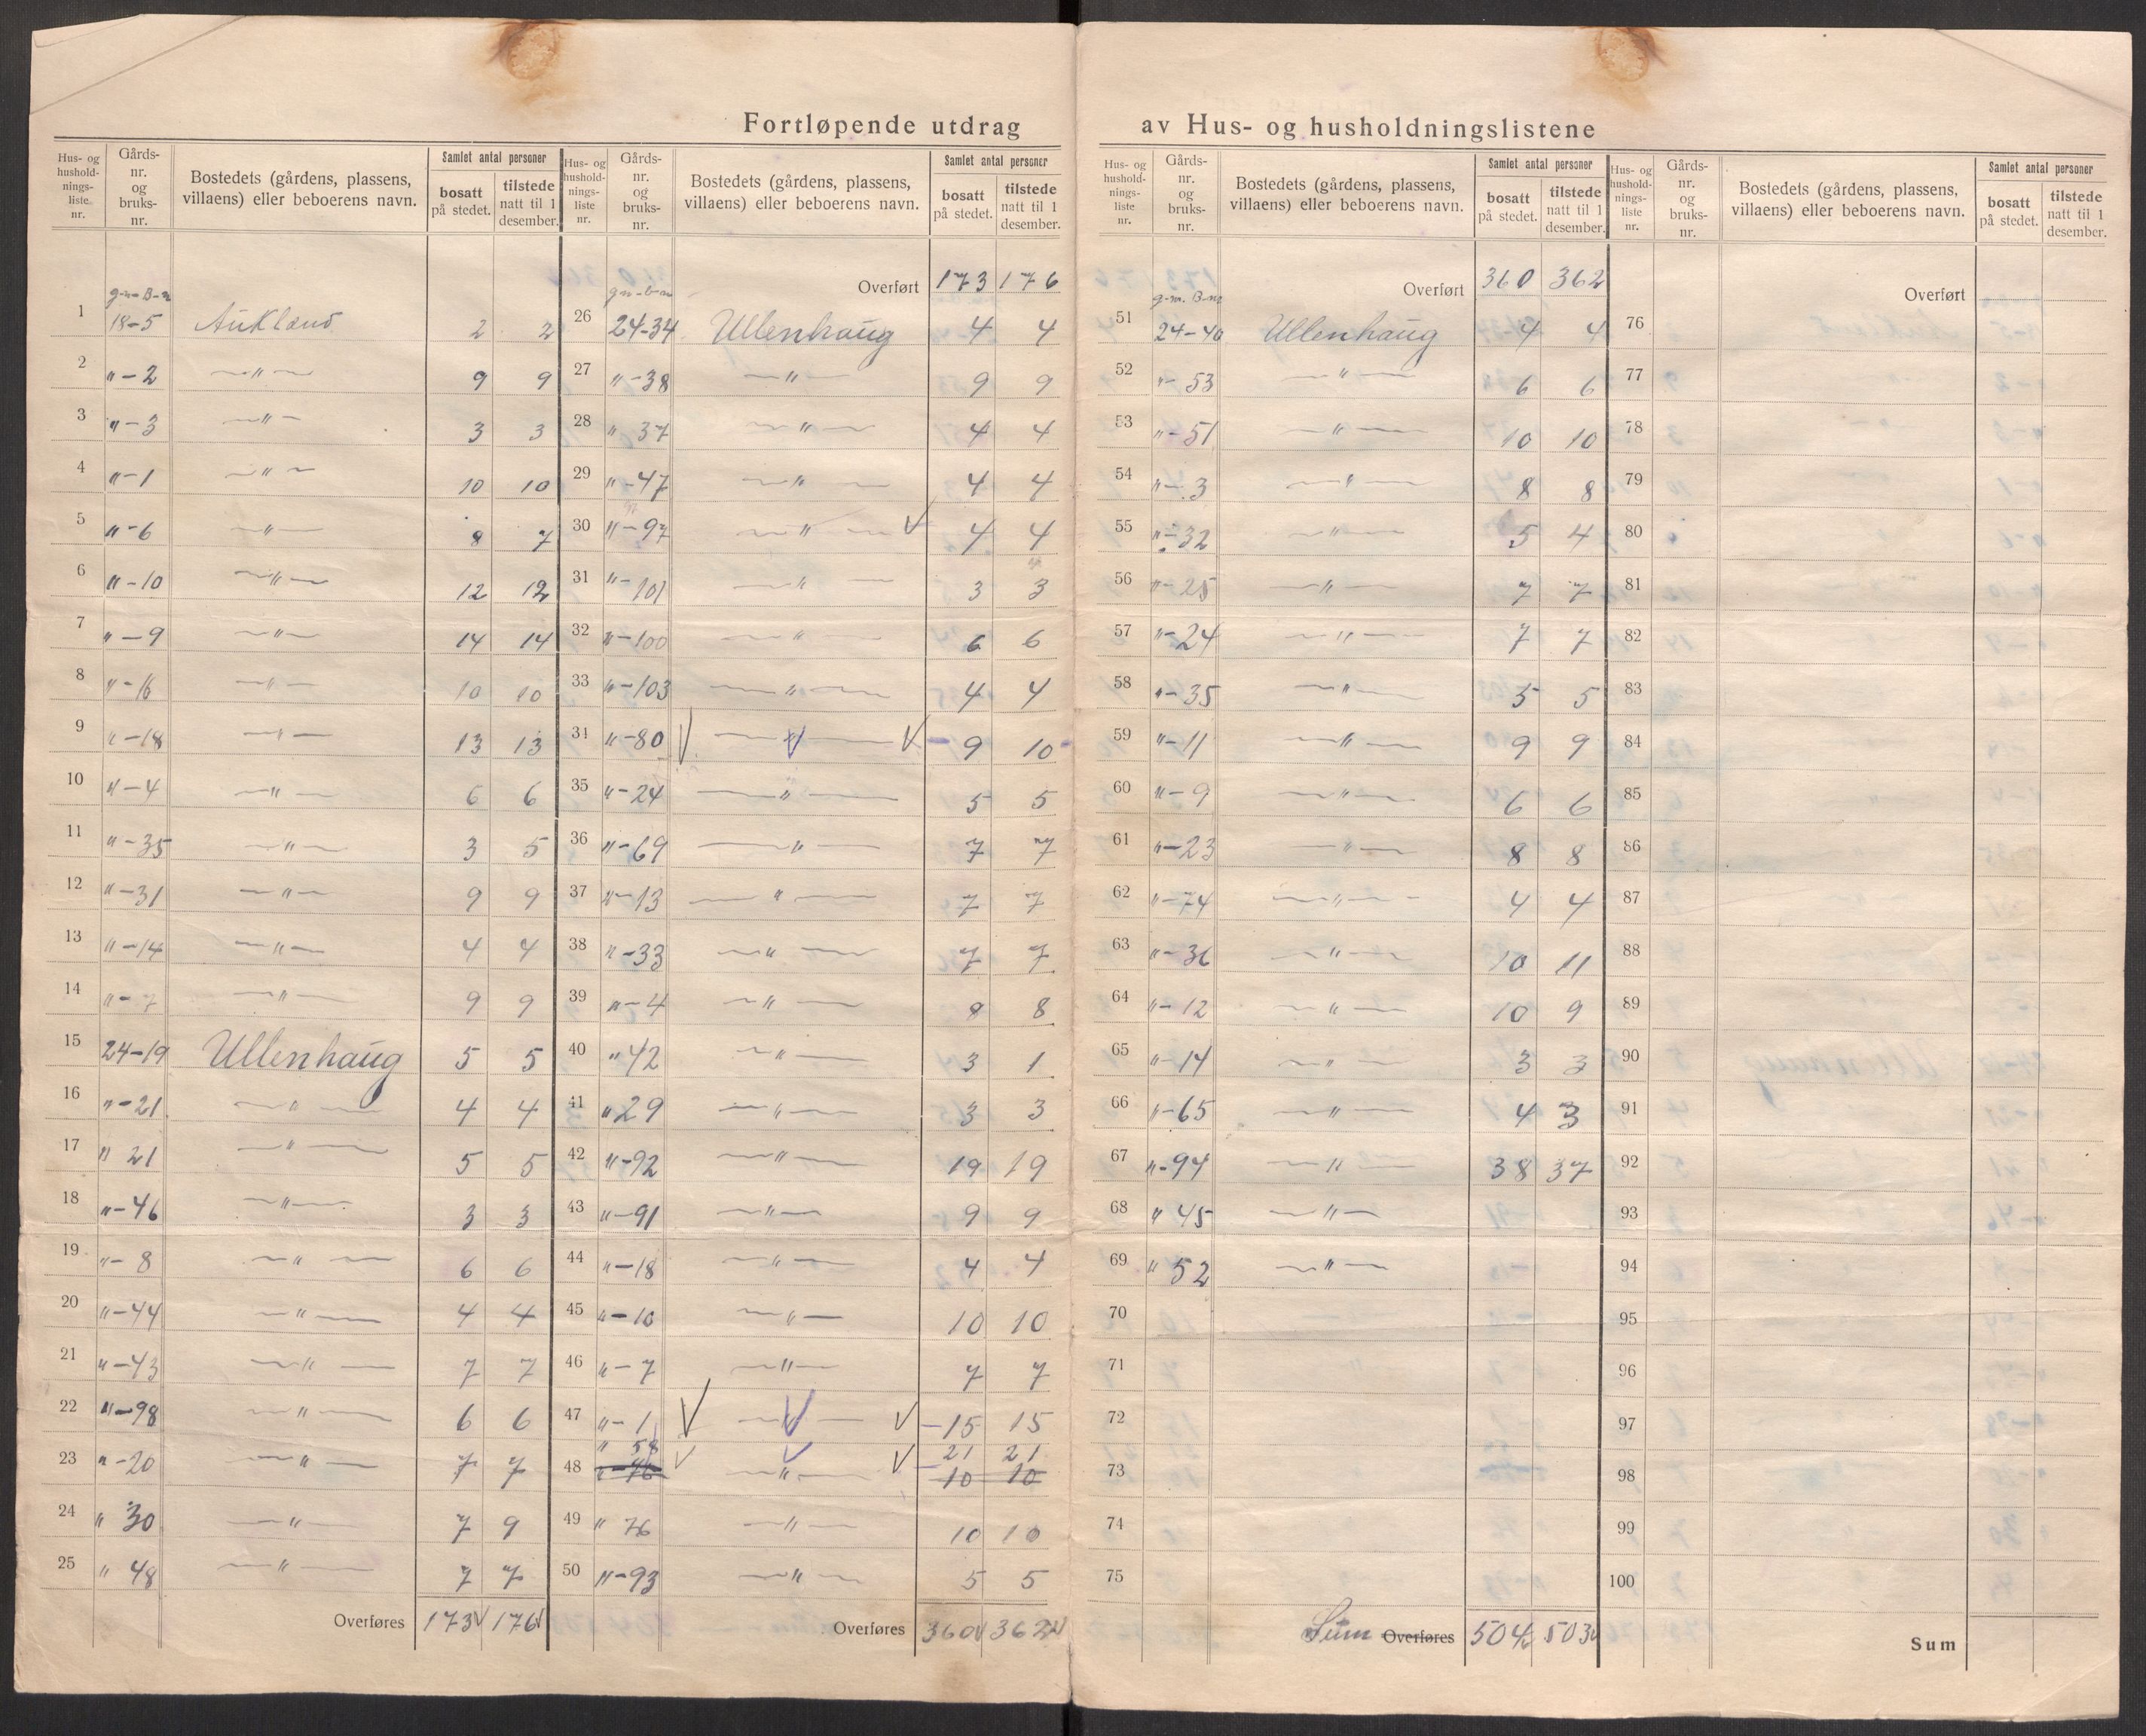 Fortløpende utdrag av Hus- og husholdningslistene
Hus- og hushold- nings- liste nr. Gårds- nr. og bruks- nr. Bostedets (gårdens, plassens, villaens) eller beboerens navn. Samlet antal personer bosatt på stedet. tilstede natt til 1 desember.
g-nr B-nr
1 18-5 Aukland 2 2
2 " - 2 — " — 9 9
3 " - 3 — " — 3 3
4 " - 1 — " — 10 10
5 " - 6 — " — 8 7
6 " - 10 — " — 12 12
7 " - 9 — " — 14 14
8 " - 16 — " — 10 10
9 " - 18 — " — 13 13
10 " - 4 — " — 6 6
11 " - 35 — " — 3 5
12 " - 31 — " — 9 9
13 " - 14 — " — 4 4
14 " - 7 — " — 9 9
15 24-19 Ullenhaug 5 5
16 " - 21 — " — 4 4
17 " 21 — " — 5 5
18 " - 46 — " — 3 3
19 " - 8 — " — 6 6
20 " - 44 — " — 4 4
21 " - 43 — " — 7 7
22 " - 98 — " — 6 6
23 " - 20 — " — 7 7
24 " 30 — " — 7 9
25 " 48 — " — 7 7
Overføres 173 176
Hus- og hushold- nings- liste nr. Gårds- nr. og bruks- nr. Bostedets (gårdens, plassens, villaens) eller beboerens navn. Samlet antal personer bosatt på stedet. tilstede natt til 1 desember.
Overført 173 176
g-nr-b-nr
26 24-34 Ullenhaug 4 4
27 " - 38 — " — 9 9
28 " 37 — " — 4 4
29 " - 47 — " — 4 4
30 " - 97 — " — 4 4
31 " - 101 — " — 3 3
32 " - 100 — " — 6 6
33 " - 103 — " — 4 4
34 " - 80 — " — 9 10
35 " - 24 — " — 5 5
36 " - 69 — " — 7 7
37 " - 13 — " — 7 7
38 " - 33 — " — 7 7
39 " - 4 — " — 9 8
40 " 42 — " — 3 1
41 " 29 — " — 3 3
42 " - 92 — " — 19 19
43 " - 91 — " — 9 9
44 " - 18 — " — 4 4
45 " - 10 — " — 10 10
46 " - 7 — " — 7 7
47 " - 1 — " — 15 15
" 58 21 21
48 " - 76 — " — 10 10
49 " 76 — " — 10 10
50 " - 93 — " — 5 5
Overføres 360 362
Hus- og hushold- nings- liste nr. Gårds- nr. og bruks- nr. Bostedets (gårdens, plassens, villaens) eller beboerens navn. Samlet antal personer bosatt på stedet. tilstede natt til 1 desember.
Overført 360 362
g-nr. B-nr
51 24-40 Ullenhaug 4 4
52 " - 53 — " — 6 6
53 " - 51 — " — 10 10
54 " - 3 — " — 8 8
55 " - 32 — " — 5 4
56 " - 25 — " — 7 7
57 " - 24 — " — 7 7
58 " - 35 — " — 5 5
59 " - 11 — " — 9 9
60 " - 9 — " — 6 6
61 " - 23 — " — 8 8
62 " - 74 — " — 4 4
63 " - 36 — " — 10 11
64 " - 12 — " — 10 9
65 " - 14 — " — 3 3
66 " - 65 — " — 4 3
67 " - 94 — " — 38 37
68 " 45 — " —
69 " 52 — " —
70
71
72
73
74
75
Sum Overføres 504 503
Hus- og hushold- nings- liste nr. Gårds- nr. og bruks- nr. Bostedets (gårdens, plassens, villaens) eller beboerens navn. Samlet antal personer bosatt på stedet. tilstede natt til 1 desember.
Overført
76
77
78
79
80
81
82
83
84
85
86
87
88
89
90
91
92
93
94
95
96
97
98
99
100
Sum